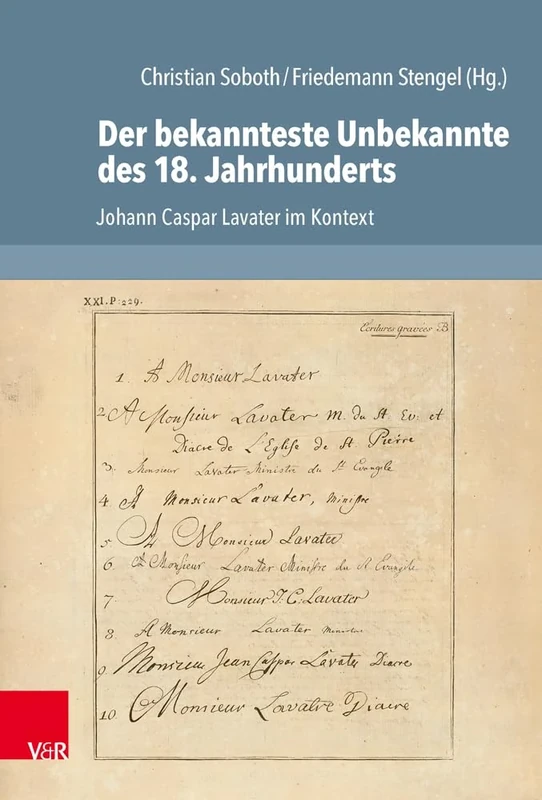 Christian Soboth / Friedemann Stengel (Hg.)
Der bekannteste Unbekannte
des 18. Jahrhunderts
Johann Caspar Lavater im Kontext
XXI. P: 229.
Ecritures gravées B
1. A Monsieur Lavater
2 A Monsieur Lavater M. du St Ev: et
Diacre de L'Eglise de St Pierre
3. Monsieur Lavater Ministre du St Evangile
4 A Monsieur Lavater, Ministre
5 A Monsieur Lavater
6. A Monsieur Lavater Ministre du St. Evangile
7 Monsieur J: C: Lavater
8. A Monsieur Lavater
9 Monsieur Jean Caspar Lavater Diacre
10 Monsieur Lavatre Diacre
V&R